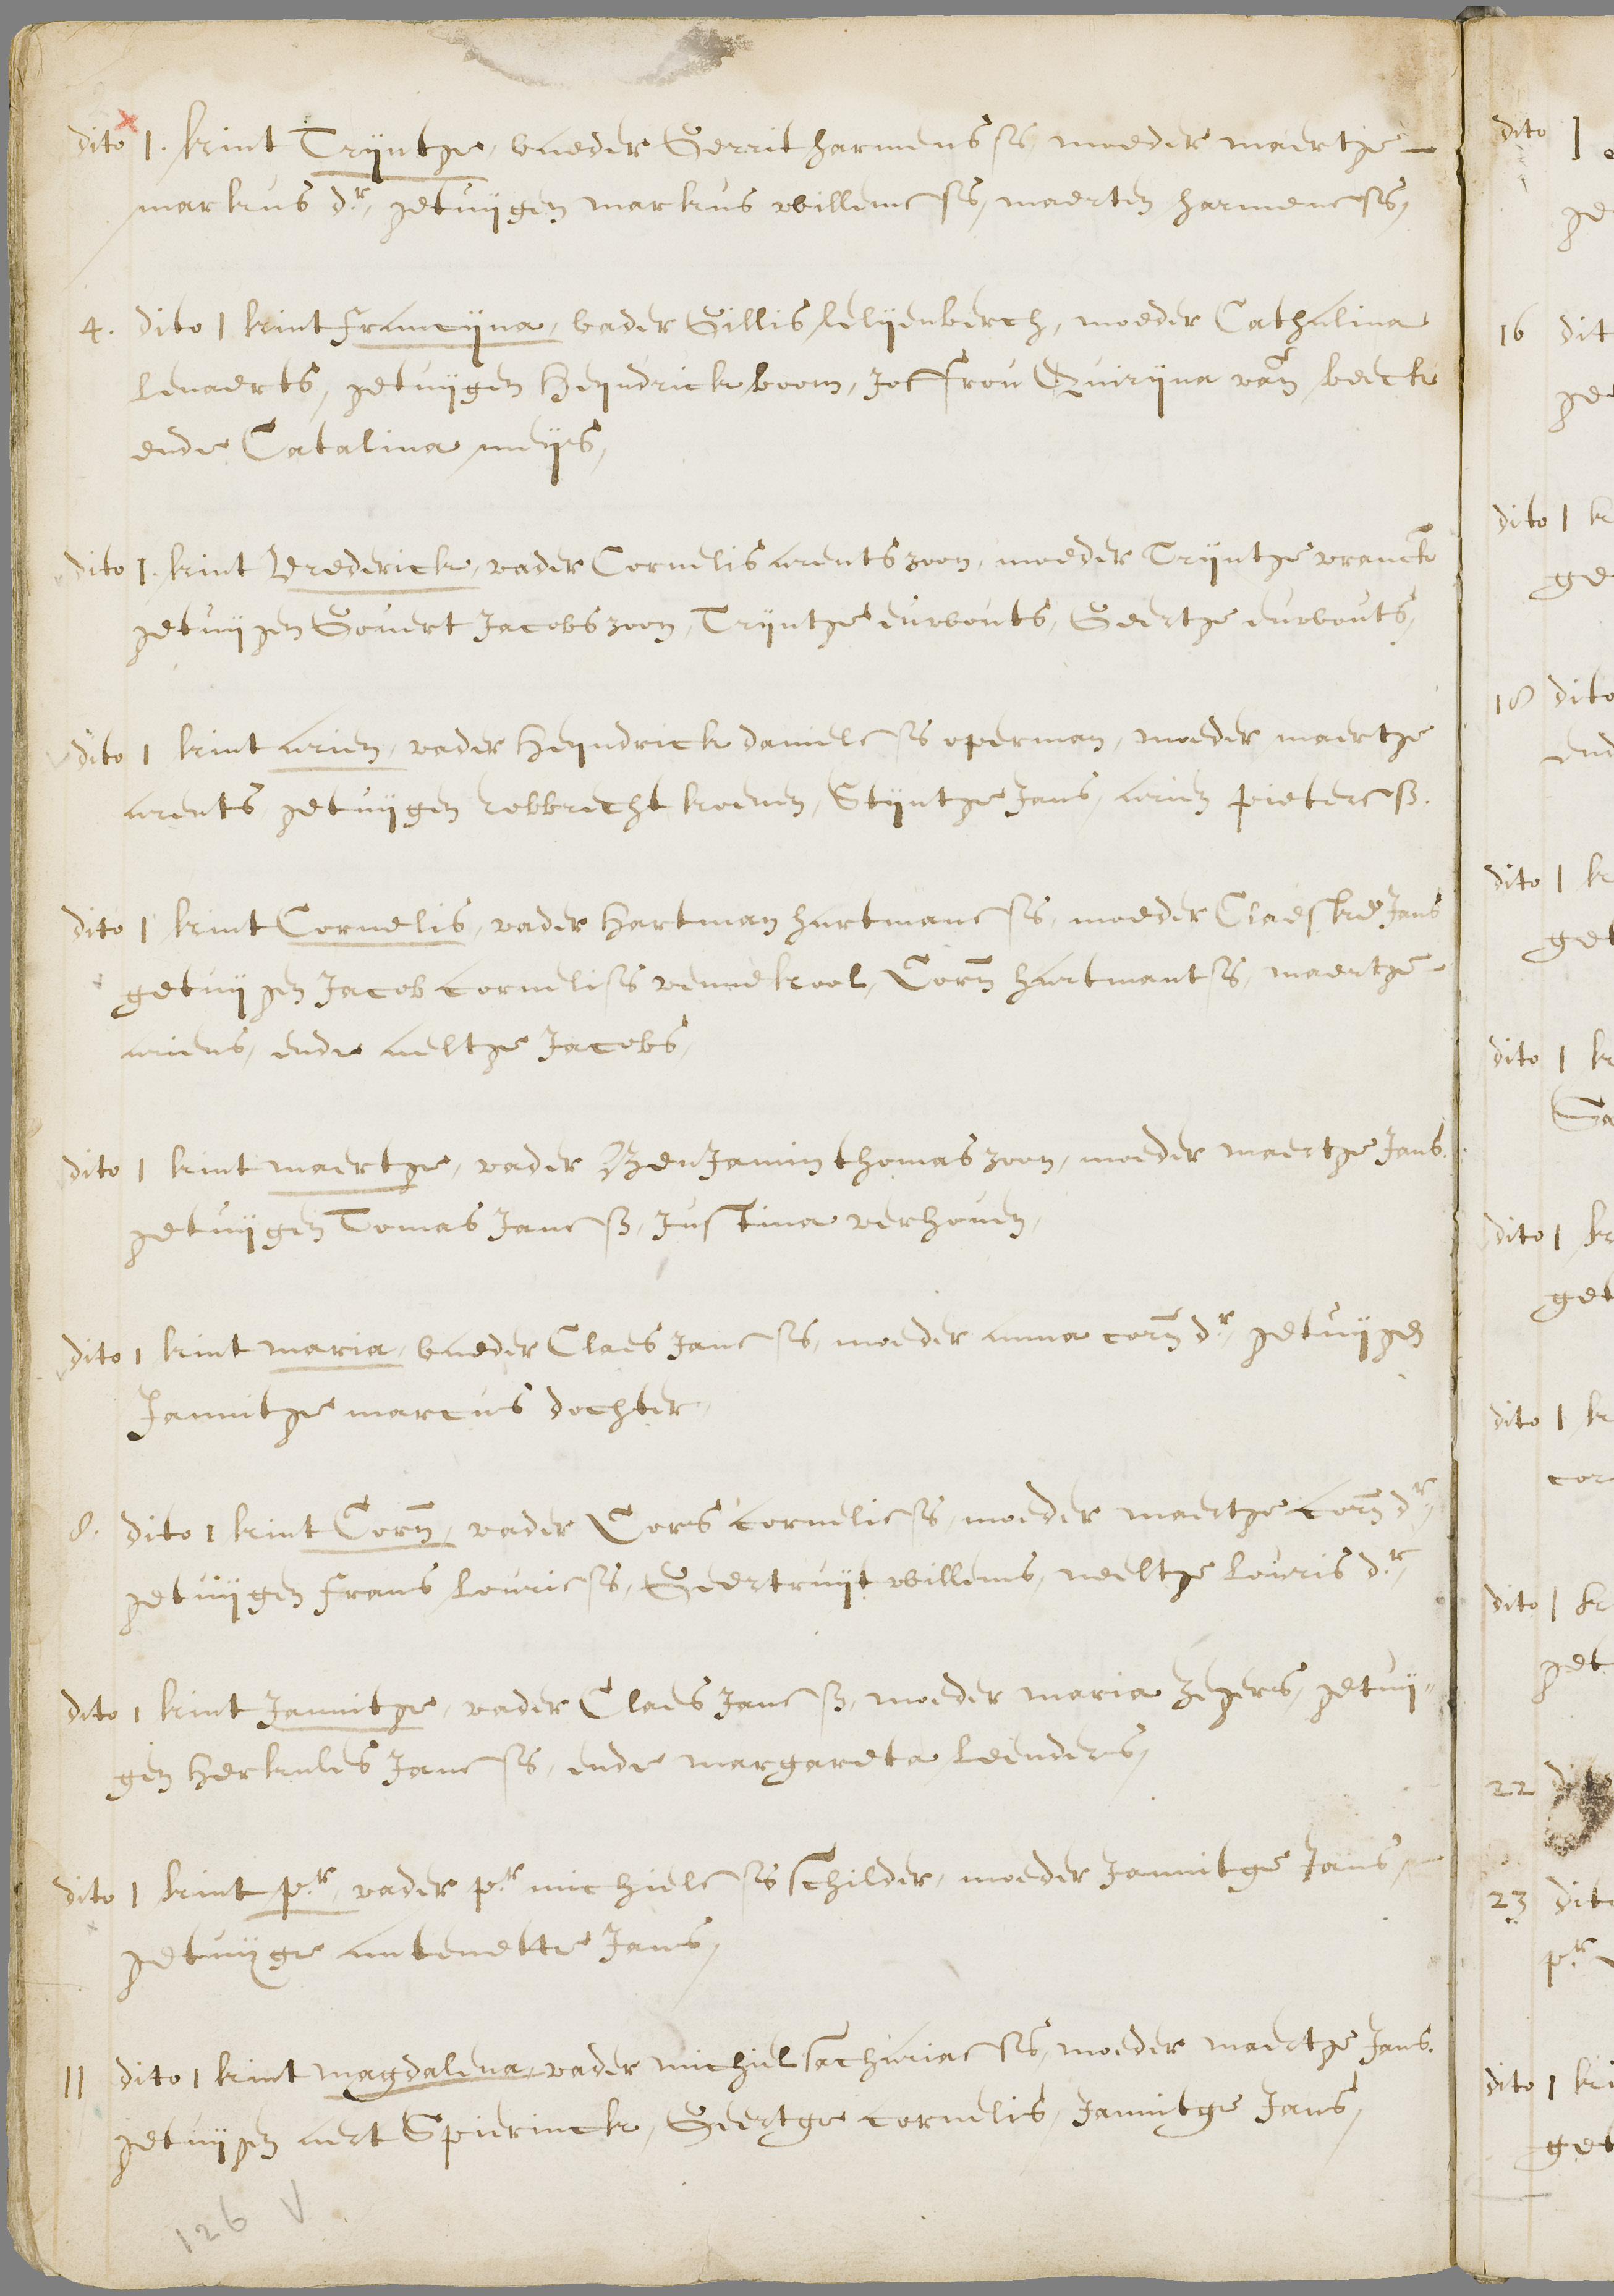 dito 1. kint Trijntge, vaeder Gerrit harmens ss, moeder maertge
markus dr, getuijgen markus willemc ss, maerten harmenc ss,
4. dito 1 kint franscijna, vader Gillis lelijenberch, moeder Cathalina
lenaerts, getuijgen Heijndrick boom, Joffrou Quirijna van beeck
ende Catalina meijs,
dito 1. kint Vrederick, vader Cornelis arentszoon, moeder Trijntge vranck
getuijgen Govert Jacobszoon, Trijntge euwouts, Geertge euwouts,
dito 1 kint arien, vader Heijndrick danielc ss operman, moeder maertge
arents getuijgen robbrecht koenen, Stijntge Jans, arien pieterc ss.
dito 1 kint Cornelis, vader Hartman hartmanc ss, moeder Claeske Jans
getuijgen Jacob corneliss vennekool, Corn hartmants, maertge
ariens, ende aeltge Jacobs,
dito 1 kint maertge, vader BenJamin thomaszoon, moeder maertge Jans.
getuijgen Tomas Janc ss, Justina verhoven,
dito 1 kint maria, vaeder Claes Janc ss, moeder anna corn dr, getuijgen
Jannitge marcus dochter,
8. dito 1 kint Corn, vader Cors cornelic ss, moeder maertge corn dr,
getuijgen frans louric ss, Geertruijt willems, neeltge louris dr,
dito 1 kint Jannitge, vader Claes Janc ss, moeder maria Zegers, getuij-
gen Herkules Janc ss, ende margareta leenders,
dito 1 kint pr, vader pr michielc ss schilder, moeder Jannitge Jans,
getuijge antenette Jans,
11 dito 1 kint magdalena, vader michiel sachariac ss, moeder maertge Jans.
getuijgen aert Spierinck, Geertge cornelis, Jannitge Jans,
126 V
dito 1.
ge
16 dit
ge
dito 1 k
ge
18 dito
end
dito 1 k
get
dito 1 k
dito 1 k
get
dito 1 k
cor
dito 1 k
get
22
23 dito
pr
dito 1 ki
get